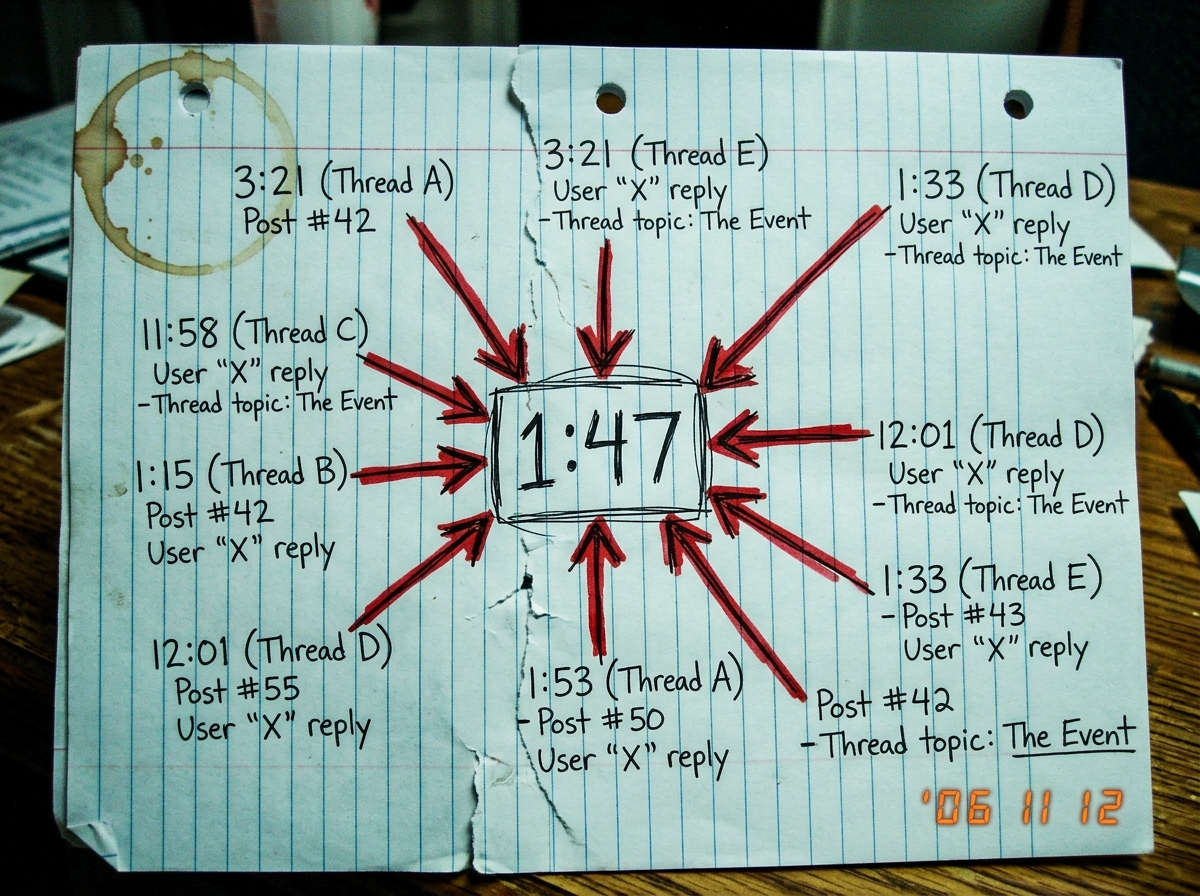 3:21 (Thread A)
Post #42
3:21 (Thread E)
User "X" reply
-Thread topic: The Event
1:33 (Thread D)
User "X" reply
-Thread topic: The Event
11:58 (Thread C)
User "X" reply
-Thread topic: The Event
1:47
12:01 (Thread D)
User "X" reply
-Thread topic: The Event
1:15 (Thread B)
Post #42
User "X" reply
1:33 (Thread E)
- Post #43
User "X" reply
12:01 (Thread D)
Post #55
User "X" reply
1:53 (Thread A)
- Post #50
User "X" reply
Post #42
- Thread topic: The Event
'06 11 12